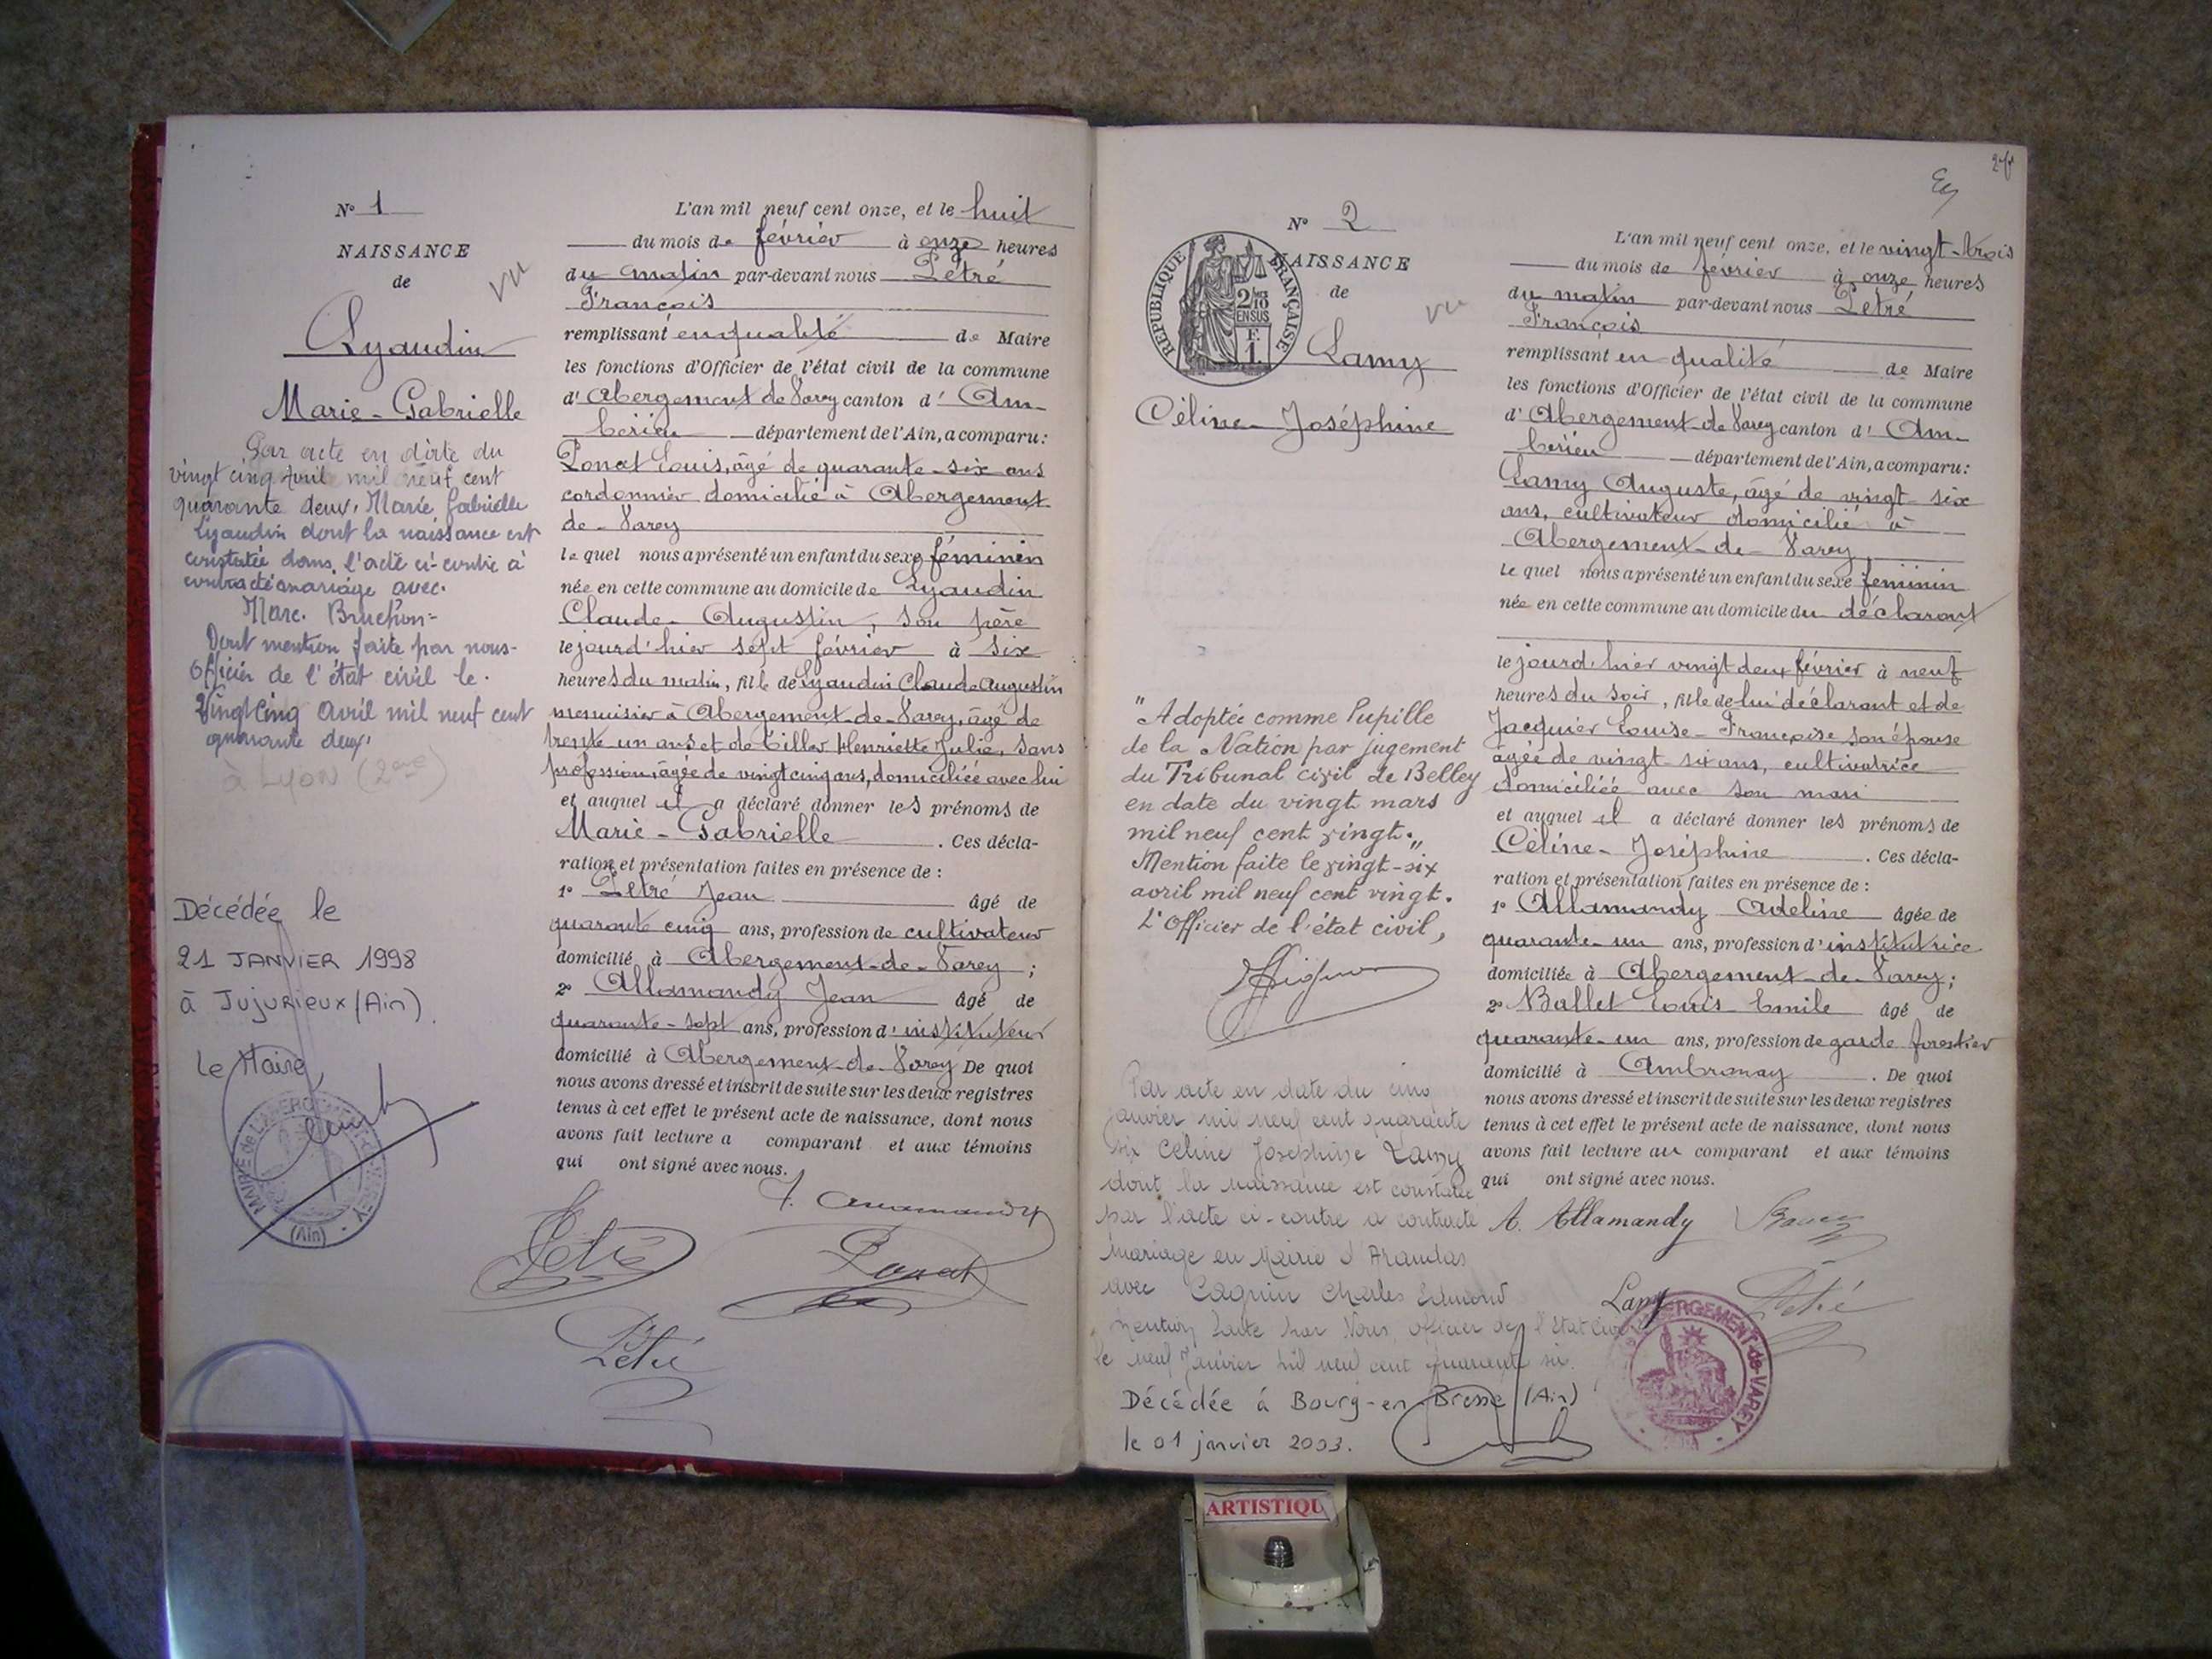 N° 1
NAISSANCE
de
Lyaudin
Marie-Gabrielle
vu
Par acte en date du
vingt cinq Avril mil neuf cent
quarante deux, Marie Gabrielle
Lyaudin dont la naissance est
constatée dans l'acte ci-contre à
contracté mariage avec.
Marc. Bruchon-
Dont mention faite par nous-
Officier de l'état civil le.
Vingt Cinq avril mil neuf cent
quarante deux.
à Lyon (2eme)
Décédée le
21 JANVIER 1998
à Jujurieux (Ain).
le Maire,
(Ain)
L'an mil neuf cent onze, et le huit
du mois de février à onze heures
du matin par-devant nous Pétré
François
remplissant en qualité de Maire
les fonctions d'Officier de l'état civil de la commune
d'Abergement de Varey canton d'Am-
bérieu département de l'Ain, a comparu:
Ponat Louis, âgé de quarante-six ans
cordonnier domicilié à Abergement
de-Varey
le quel nous a présenté un enfant du sexe féminin
née en cette commune au domicile de Lyaudin
Claude-Augustin, son père
le jourd'hier sept février à six
heures du matin, fille de Lyaudin Claude Augustin
menuisier à Abergement-de-Varey, âgé de
trente un ans et de Tiller Henriette Julie, sans
profession, âgée de vingt cinq ans, domiciliée avec lui
et auquel il a déclaré donner les prénoms de
Marie-Gabrielle. Ces décla-
ration et présentation faites en présence de :
1° Pétré Jean âgé de
quarante cinq ans, profession de cultivateur
domicilié à Abergement-de-Varey ;
2° Allamandy Jean âgé de
quarante-sept ans, profession d'instituteur
domicilié à Abergement-de-Varey De quoi
nous avons dressé et inscrit de suite sur les deux registres
tenus à cet effet le présent acte de naissance, dont nous
avons fait lecture a comparant et aux témoins
qui ont signé avec nous.
J. Allamandy
Pétré
Ponat
Pétré
N° 2
NAISSANCE
de
RÉPUBLIQUE FRANÇAISE
2/10
EN SUS
F.
1.
vu
Lamy
Céline-Joséphine
"Adoptée comme Pupille
de la Nation par jugement
du Tribunal civil de Belley
en date du vingt mars
mil neuf cent vingt."
Mention faite le vingt-six
avril mil neuf cent vingt.
L'Officier de l'état civil,
Par acte en date du cinq
janvier mil neuf cent quarante
six Céline Josephine Lamy
dont la naissance est constatée
par l'acte ci-contre a contracté
mariage en Mairie d'Arandas
avec Cagnin Charles Edmond
Mention faite par Nous, officier de l'Etat Civil
le neuf Janvier mil neuf cent quarante six.
Décédée à Bourg-en-Bresse (Ain)
le 01 janvier 2003.
L'an mil neuf cent onze, et le vingt-trois
du mois de février à onze heures
du matin par-devant nous Pétré
François
remplissant en qualité de Maire
les fonctions d'Officier de l'état civil de la commune
d'Abergement-de-Varey canton d'Am-
bérieu département de l'Ain, a comparu:
Lamy Auguste, âgé de vingt-six
ans, cultivateur domicilié à
Abergement-de-Varey,
le quel nous a présenté un enfant du sexe féminin
née en cette commune au domicile du déclarant
le jourd'hier vingt deux février à neuf
heures du soir, fille de lui déclarant et de
Jacquier Louise-Françoise son épouse
âgée de vingt six ans, cultivatrice
domiciliée avec son mari
et auquel il a déclaré donner les prénoms de
Céline-Joséphine. Ces décla-
ration et présentation faites en présence de :
1° Allamandy Adeline âgée de
quarante-un ans, profession d'institutrice
domiciliée à Abergement-de-Varey;
2° Ballet Louis Emile âgé de
quarante-un ans, profession de garde forestier
domicilié à Ambronay. De quoi
nous avons dressé et inscrit de suite sur les deux registres
tenus à cet effet le présent acte de naissance, dont nous
avons fait lecture au comparant et aux témoins
qui ont signé avec nous.
A. Allamandy
Lamy
Pétré
ABERGEMENT-de-VAREY
ARTISTIQU